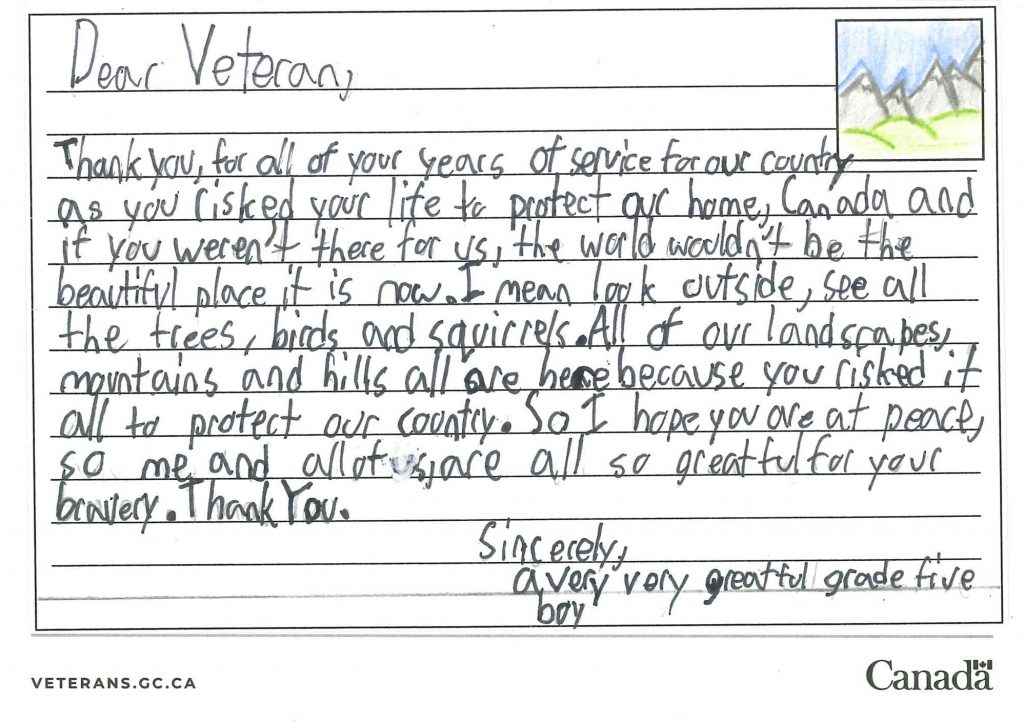 Dear Veteran,
Thank you, for all of your years of service for our country
as you risked your life to protect our home, Canada and
if you weren't there for us, the world wouldn't be the
beautiful place it is now. I mean look outside, see all
the trees, birds and squirrels. All of our landscapes,
mountains and hills all are here because you risked it
all to protect our country. So I hope you are at peace,
so me and all of us, are all so greatful for your
bravery. Thank You.
Sincerely,
a very very greatful grade five
boy
VETERANS.GC.CA
Canada